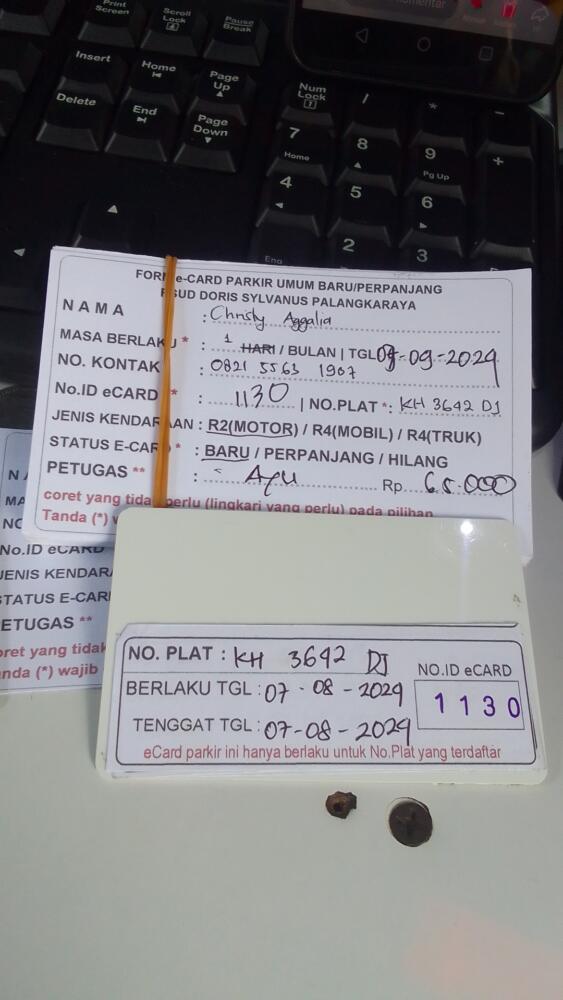 Print
Screen
Scroll
Lock
Pause
Break
Insert
Home
Page
Up
Delete
End
Page
Down
Num
Lock
/
*
-
7
Home
8
9
Pg Up
+
4
5
6
2
3
FORM e-CARD PARKIR UMUM BARU/PERPANJANG
RSUD DORIS SYLVANUS PALANGKARAYA
NAMA : Christy Aggalia
MASA BERLAKU * : 1 HARI / BULAN | TGL 07-09-2024
NO. KONTAK : 0821 5563 1907
No.ID eCARD * : 1130 | NO.PLAT * : KH 3642 DJ
JENIS KENDARAAN : R2(MOTOR) / R4(MOBIL) / R4(TRUK)
STATUS E-CARD * : BARU / PERPANJANG / HILANG
PETUGAS ** : Ayu Rp 65.000
coret yang tidak perlu (lingkari yang perlu) pada pilihan
Tanda (*) w
N
MA
NO
No.ID eCARD
JENIS KENDARA
STATUS E-CAR
ETUGAS **
oret yang tidak
nda (*) wajib
NO. PLAT : KH 3642 DJ
NO.ID eCARD
1130
BERLAKU TGL : 07-08-2024
TENGGAT TGL : 07-08-2024
eCard parkir ini hanya berlaku untuk No.Plat yang terdaftar